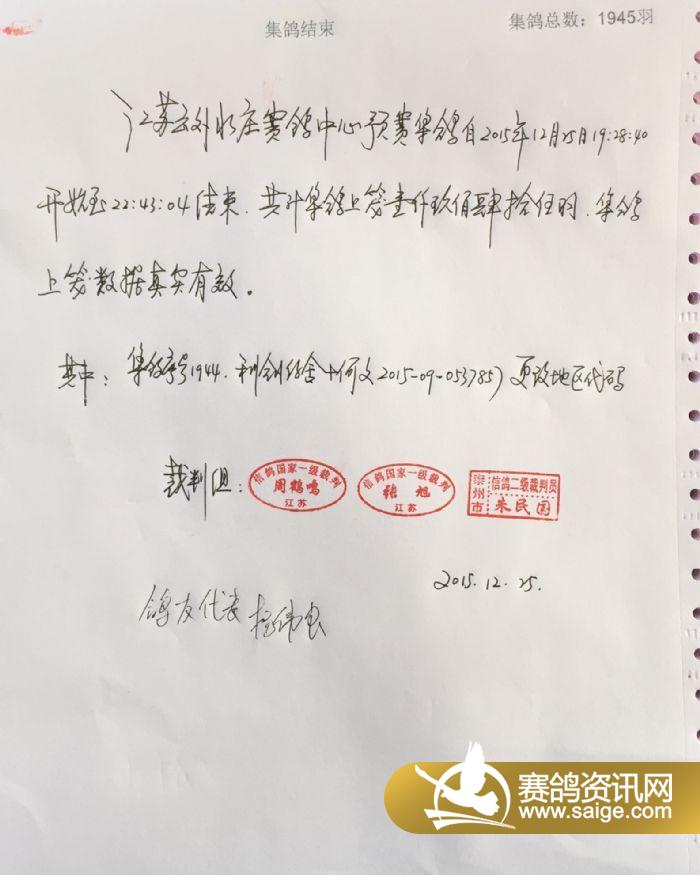 集鸽结束
集鸽总数：1945羽
江苏云外水庄赛鸽中心预赛集鸽自2015年12月25日19:28:40
开始至22:43:04结束.共计集鸽上笼壹仟玖佰肆拾伍羽.集鸽
上笼数据真实有效。
其中：集鸽序号1944.利剑鸽舍+何文2015-09-053785)更改地区代码
裁判组：
信鸽国家一级裁判
周鹤鸣
江苏
信鸽国家一级裁判
张旭
江苏
信鸽二级裁判员
州市
朱民国
2015.12.25.
鸽友代表
赛鸽资讯网
www.saige.com